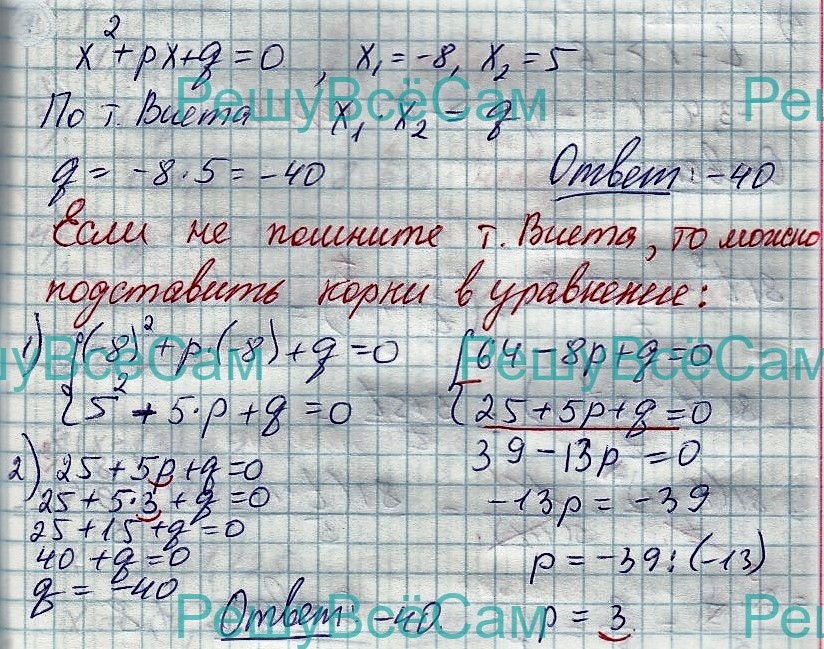 x² + px + q = 0 , x₁ = -8, x₂ = 5
По т. Виета x₁ · x₂ = q
q = -8 · 5 = -40 Ответ: -40
Если не помните т. Виета, то можно
подставить корни в уравнение:
1) { (-8)² + p·(-8) + q = 0
5² + 5·p + q = 0
{ 64 - 8p + q = 0
25 + 5p + q = 0
39 - 13p = 0
-13p = -39
p = -39 : (-13)
p = 3
2) 25 + 5p + q = 0
25 + 5·3 + q = 0
25 + 15 + q = 0
40 + q = 0
q = -40
Ответ: -40.
РешуВсёСам
Реш
уВсёСам
РешуВсёСам
РешуВсёСам
Реш